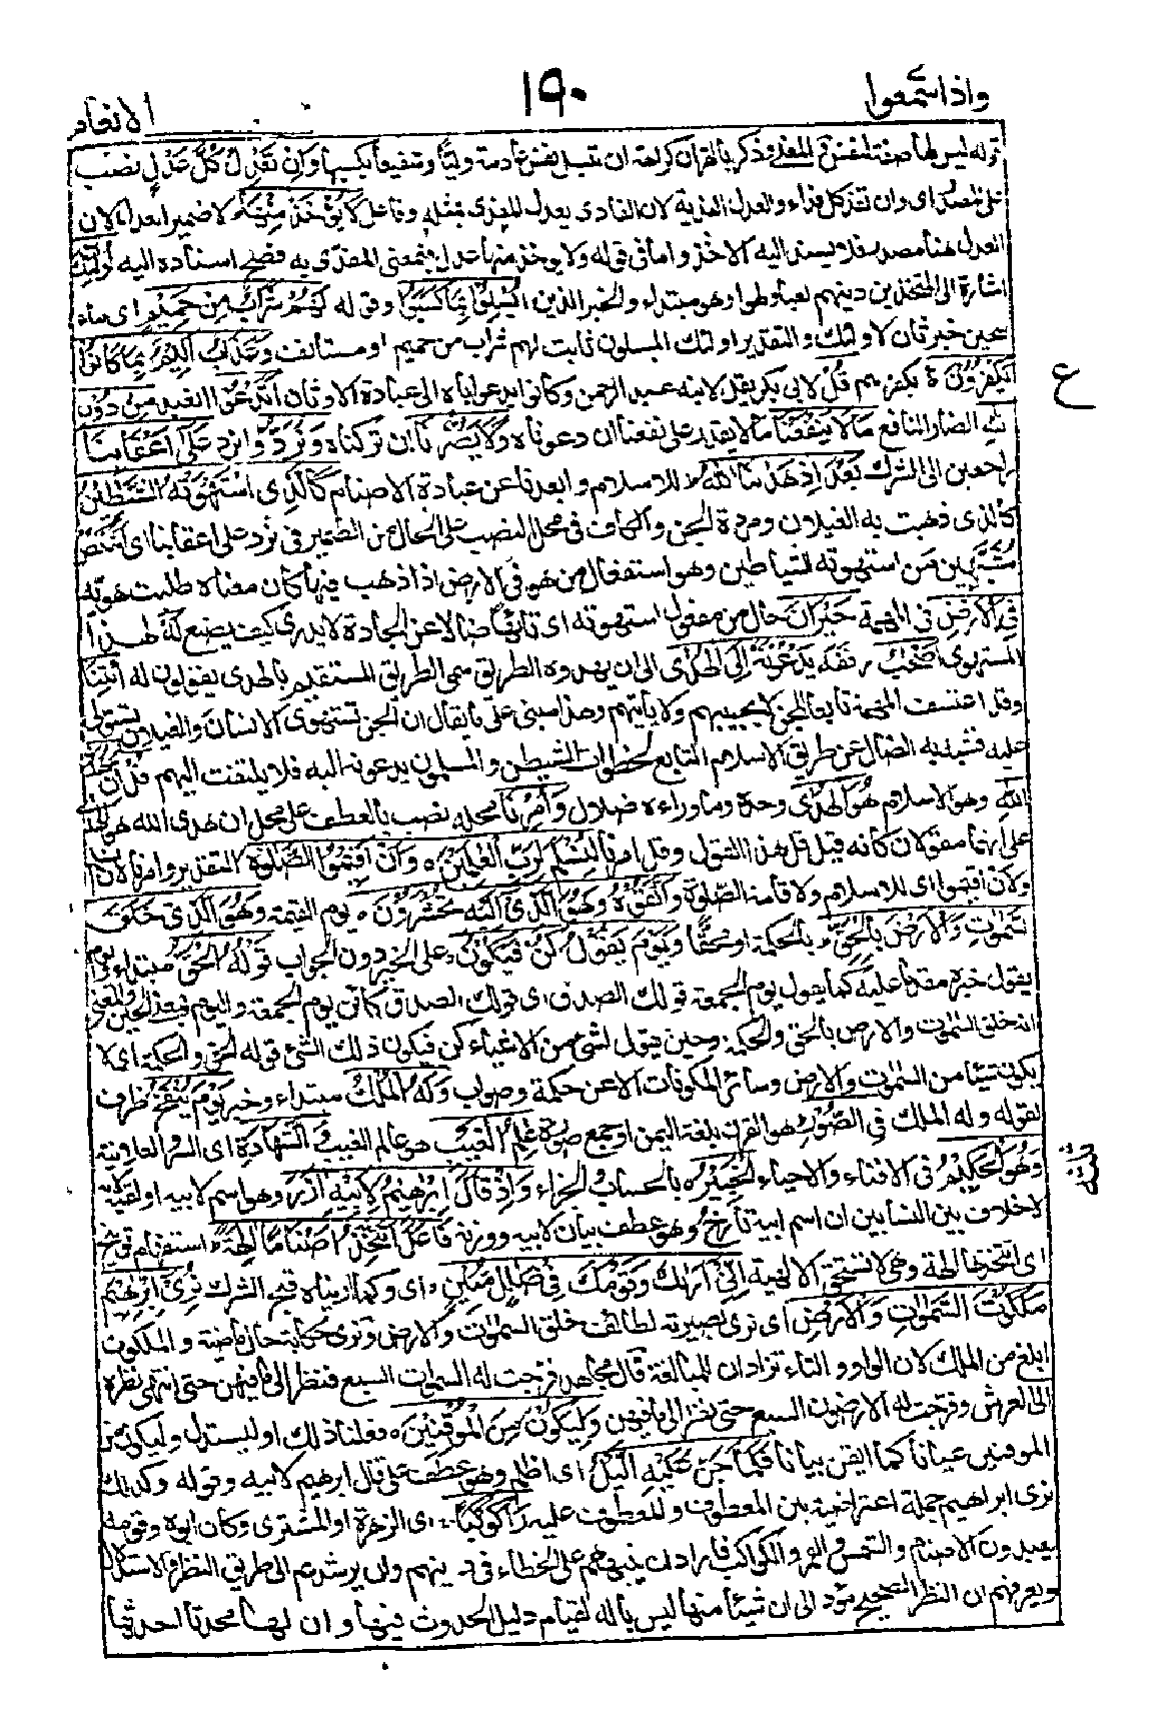 واذا سمعوا
١٩٠
الانعام
قوله ليس لها صفة لنفس والمعنى وذكر بالقران كراهة ان تبسل نفس عادمة وليا وشفيعا بكسبها وَاِنْ تَعْدِلْ كُلَّ عَدْلٍ نصب
على المصدر اى وان تفد كل فداء والعدل الفدية لان الفادى يعدل المفدى بمثله وفاعل لَا يُؤْخَذْ مِنْهَا لا ضمير العدل لان
العدل هنا مصدر فلا يسند اليه الاخذ واما فى قوله ولا يوخذ منها عدل فبمعنى المفدى به فصح اسناده اليه اُولٰٓئِكَ
اشارة الى المتخذين دينهم لعبا ولهوا وهو مبتداء والخبر الَّذِيْنَ اُبْسِلُوْا بِمَا كَسَبُوْا وقوله لَهُمْ شَرَابٌ مِّنْ حَمِيْمٍ اى ماء
سخين خبر ثان لاولئك والتقدير اولئك المبسلون ثابت لهم شراب من حميم او مستانف وَعَذَابٌ اَلِيْمٌ بِمَا كَانُوْا
يَكْفُرُوْنَ ه بكفرهم قُلْ لابى بكر يقل لابنه عبد الرحمن وكانوا يدعو اباه الى عبادة الاوثان اَنَدْعُوْا انعبد مِنْ دُوْنِ
اللهِ الضار النافع مَا لَا يَنْفَعُنَا ما لا يقدر على نفعنا ان دعوناه وَلَا يَضُرُّنَا ان تركناه وَنُرَدُّ وانرد عَلٰٓى اَعْقَابِنَا
راجعين الى الشرك بَعْدَ اِذْ هَدٰىنَا اللهُ للاسلام وابعدنا عن عبادة الاصنام كَالَّذِى اسْتَهْوَتْهُ الشَّيٰطِيْنُ
كالذى ذهبت به الغيلان ومردة الجن والكاف فى محل النصب على الحال عن الضمير فى نرد على اعقابنا اى اننكص
مشبهين من استهوته الشياطين وهو استفعال من هوى فى الارض اذا ذهب فيها كان معناه طلبت هويه
فِى الْاَرْضِ فى المهمة حَيْرَانَ حال من مفعول استهوته اى تائها ضالا عن الجادة لا يدرى كيف يصنع لَهٗٓ لهذا
المستهوى اَصْحٰبٌ رفقة يَدْعُوْنَهٗٓ اِلَى الْهُدَى الى ان يهدوه الطريق سمى الطريق المستقيم بالهدى يقولون له ائْتِنَا
وقد اعتسف المهمة تابعا للجن لا يجيبهم ولا ياتيهم وهذا مبنى على ما يقال ان الجن تستهوى الانسان والغيلان تستولى
عليه فشبه به الضال عن طريق الاسلام التابع لخطوات الشيطن والمسلمون يدعونه اليه فلا يلتفت اليهم قُلْ اِنَّ هُدَى
اللهِ وهو الاسلام هُوَ الْهُدٰى وحده وما وراءه ضلال وَاُمِرْنَا محله نصب بالعطف على محل ان هدى الله هو الهدى
على انهما مقولان كانه قيل قل هذا القول وقل امرنا لِنُسْلِمَ لِرَبِّ الْعٰلَمِيْنَ ه وَاَنْ اَقِيْمُوا الصَّلٰوةَ التقدير وامرنا لان نسلم
ولان اقيموا اى للاسلام ولاقامة الصلوة وَاتَّقُوْهُ وَهُوَ الَّذِىْٓ اِلَيْهِ تُحْشَرُوْنَ ه يوم القيمة وَهُوَ الَّذِىْ خَلَقَ
السَّمٰوٰتِ وَالْاَرْضَ بِالْحَقِّ بالحكمة او محقا وَيَوْمَ يَقُوْلُ كُنْ فَيَكُوْنُ على الخبر دون الجواب قَوْلُهُ الْحَقُّ مبتداء ويوم
يقول خبره مقدما عليه كما يقول يوم الجمعة قولك الصدق اى قولك الصدق كائن يوم الجمعة واليوم بمعنى الحين والمعنى
انه خلق السموت والارض بالحق والحكمة وحين يقول لشئ من الاشياء كن فيكون ذلك الشئ قوله الحق والحكمة اى لا
يكون شيئا من السموت والارض وسائر المكونات الا عن حكمة وصواب وَلَهُ الْمُلْكُ مبتداء وخبر يَوْمَ يُنْفَخُ ظرف
لقوله وله الملك فِى الصُّوْرِ هو القرن بلغة اليمن او جمع صورة عٰلِمُ الْغَيْبِ هو عالم الغيب وَالشَّهَادَةِ اى السر والعلانية
وَهُوَ الْحَكِيْمُ فى الافناء والاحياء الْخَبِيْرُ ه بالحساب والجزاء وَاِذْ قَالَ اِبْرٰهِيْمُ لِاَبِيْهِ اٰزَرَ وهو اسم لابيه او لقبه لانه
لا خلاف بين النسابين ان اسم ابيه تارخ وهو عطف بيان لابيه ووزنه فاعل اَتَتَّخِذُ اَصْنَامًا اٰلِهَةً استفهام توبيخ
اى اتتخذها الهة وهى لا تستحق الالهية اِنِّىْٓ اَرٰىكَ وَقَوْمَكَ فِىْ ضَلٰلٍ مُّبِيْنٍ ه اى وكما اريناه قبح الشرك نُرِىْٓ اِبْرٰهِيْمَ
مَلَكُوْتَ السَّمٰوٰتِ وَالْاَرْضِ اى نرى بصيرته لطائف خلق السموات والارض ونرى حكاية حال ماضية والملكوت
ابلغ من الملك لان الواو والتاء تزادان للمبالغة قال مجاهد فرجت له السموات السبع فنظر الى ما فيهن حتى انتهى نظره
الى العرش وفرجت له الارضون السبع حتى نظر الى ما فيهن وَلِيَكُوْنَ مِنَ الْمُوْقِنِيْنَ ه فعلنا ذلك او ليستدل وليكون من
الموقنين عيانا كما ايقن بيانا فَلَمَّا جَنَّ عَلَيْهِ الَّيْلُ اى اظلم وهو عطف على قال ابرهيم لابيه وقوله وكذلك
نرى ابراهيم جملة اعتراضية بين المعطوف والمعطوف عليه رَاٰ كَوْكَبًا اى الزهرة او المشترى وكان ابوه وقومه
يعبدون الاصنام والشمس والقمر والكواكب فاراد ان ينبههم على الخطاء فى دينهم وان يرشدهم الى طريق النظر والاستدلال
ويعرفهم ان النظر الصحيح مؤد الى ان شيئا منها ليس باله لقيام دليل الحدوث فيها وان لها محدثا احدثها
ع
ثلثة